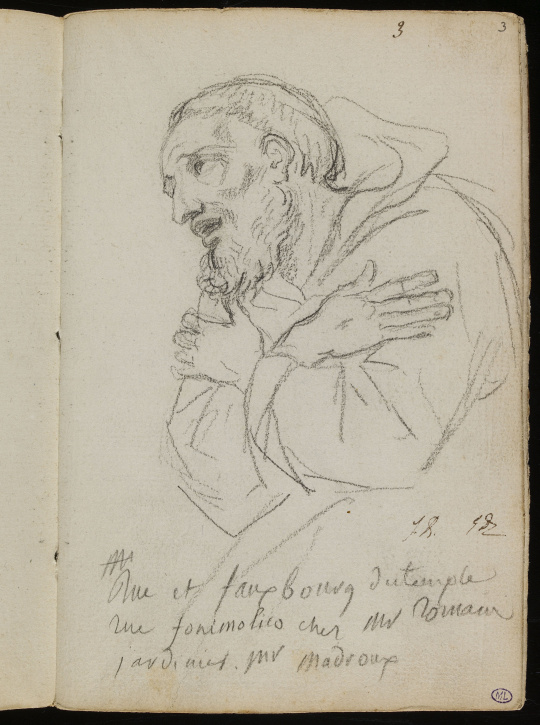 3 3
Rue et fauxbourg dutemple
rue fonimolico cher Mr Romain
jardinier. Mr Madroux
ML